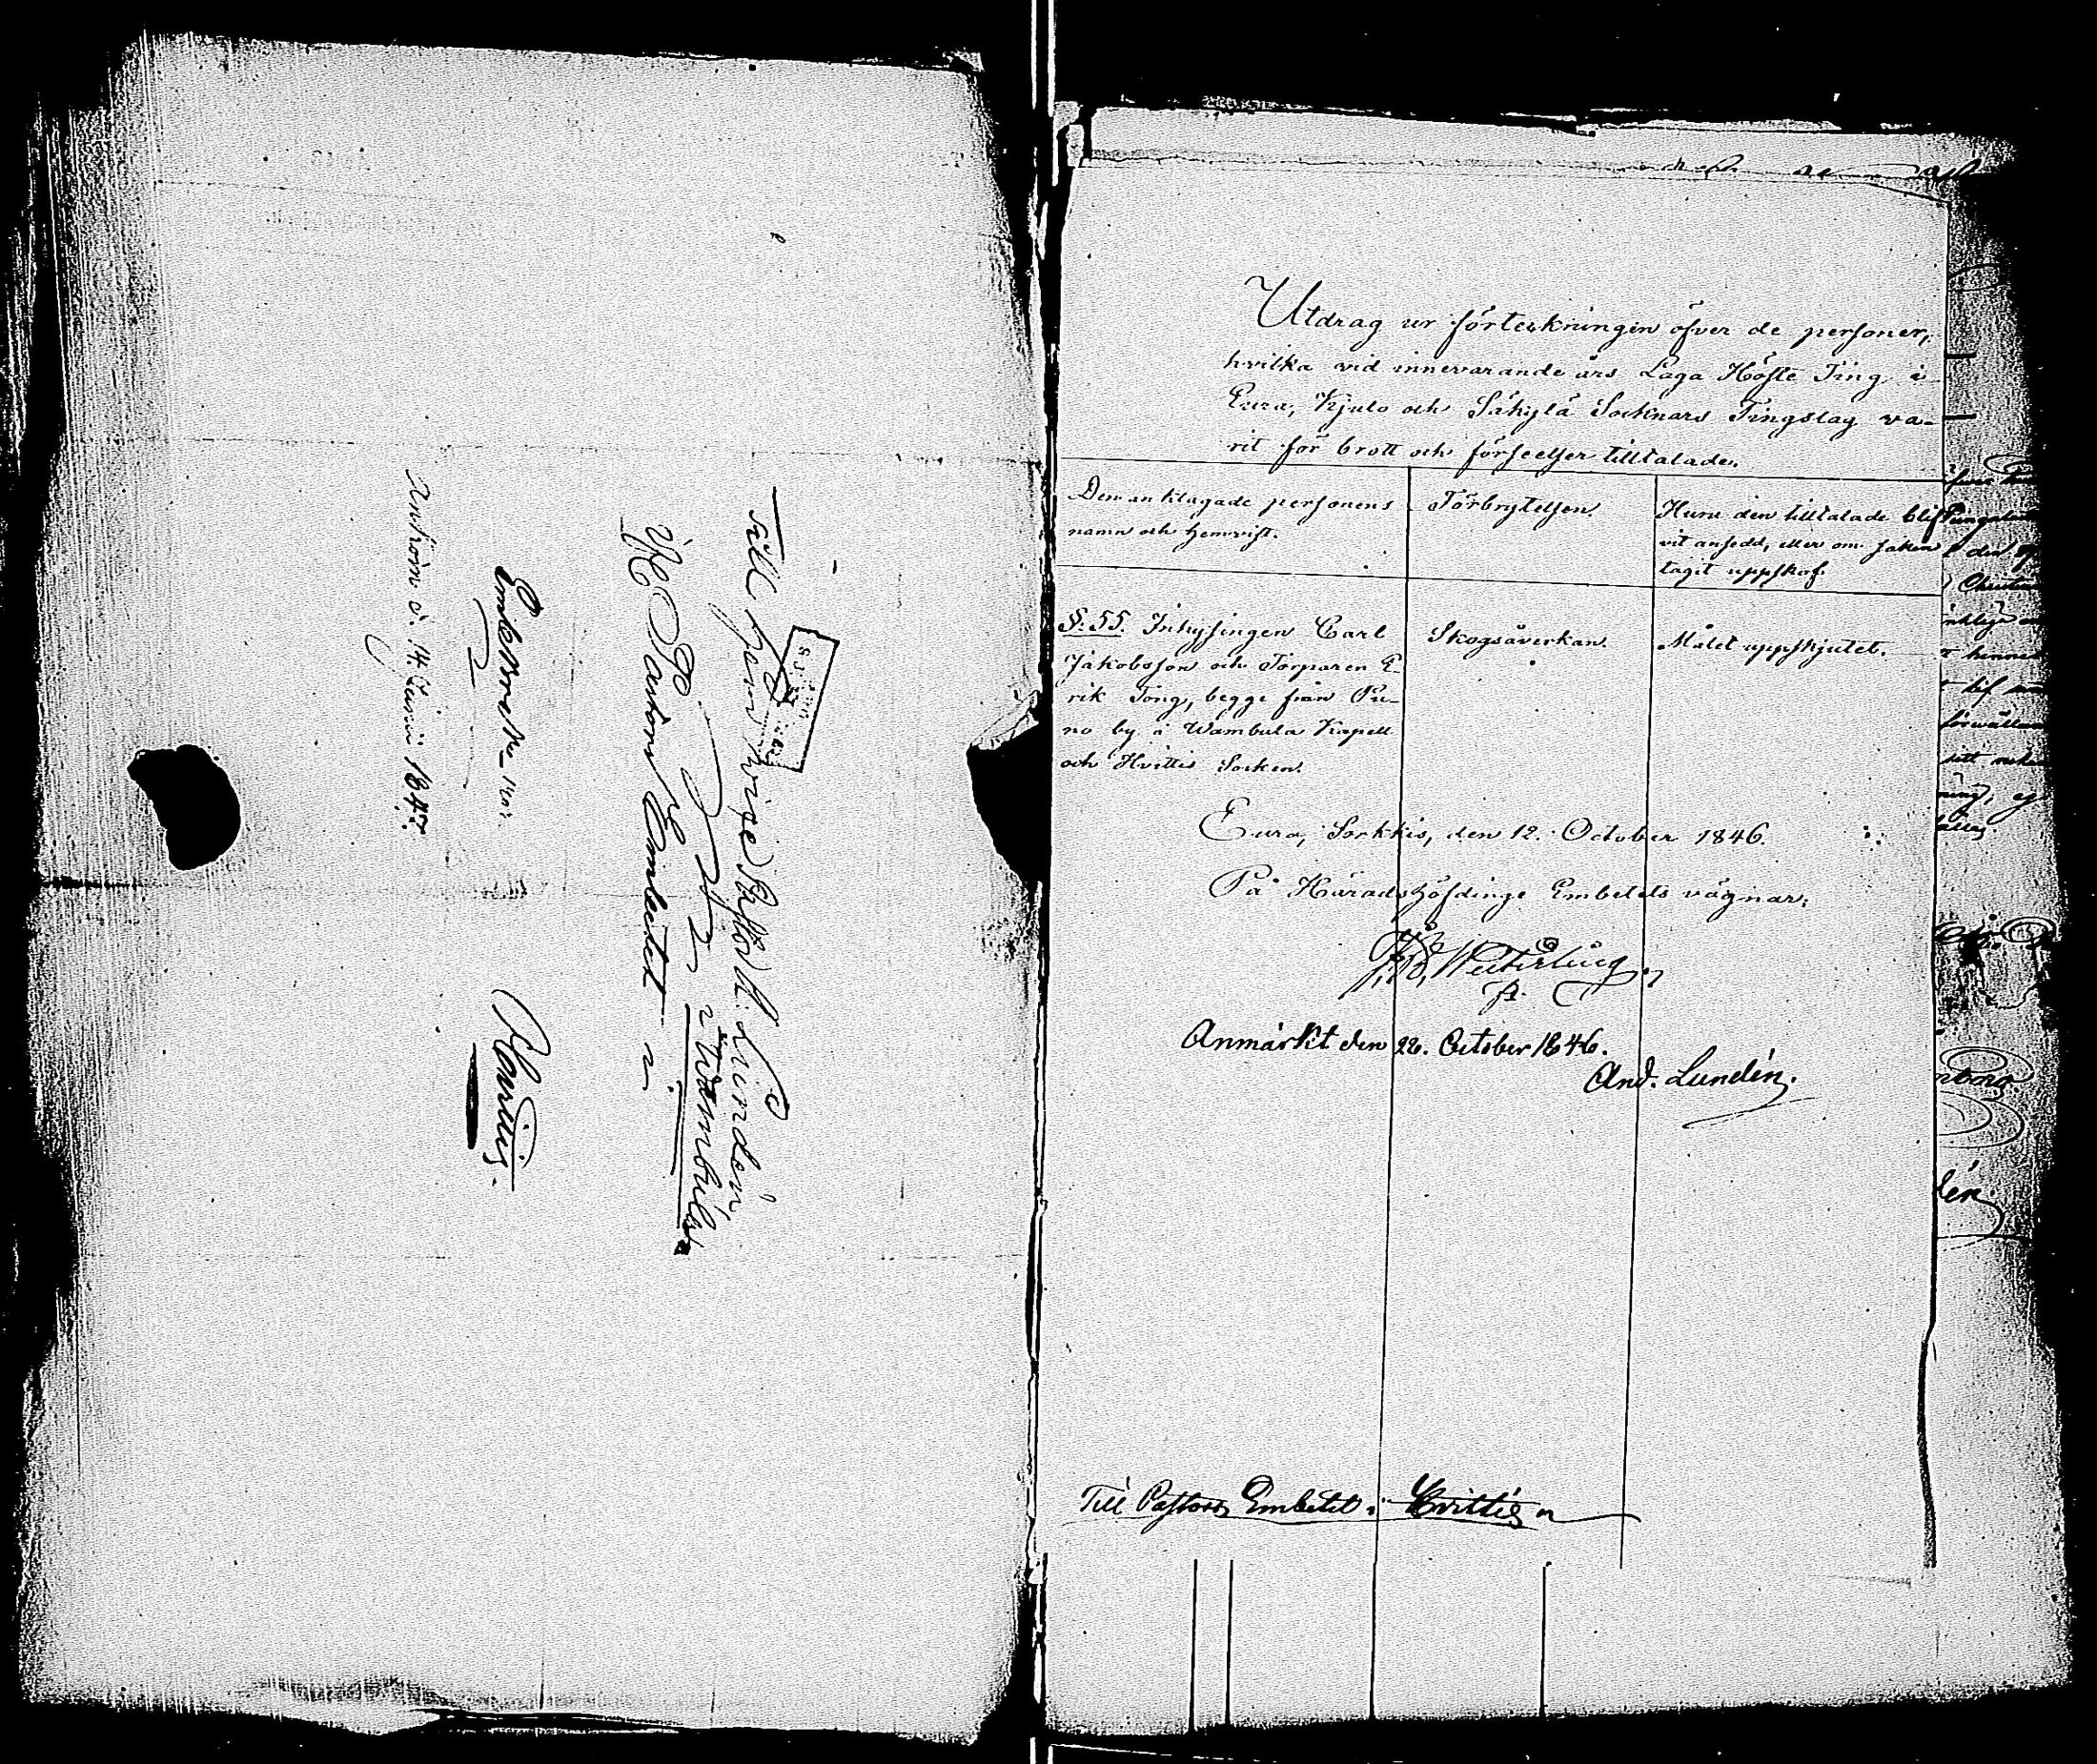 Till herr vise Pastor A. Lundén
i Wambula
Pastors Embetet
Embets
Ankom d. 14 Junii 1847.
Utdrag ur förteckningen öfver de personer,
hvilka vid innevarande års Laga Höste Ting i
Eura, Kjulo och Säkylä Socknars Tingslag va-
rit för brott och förseelser tilltalade.
Den anklagade personens
namn och hemvist.
Förbrytelsen.
Huru den tilltalade blif
vit ansedd, eller om saken
tagit uppskof.
§. 55. Inhysingen Carl
Jakobsson och Torparen E
rik Tong, begge från Pu-
no by i Wambula Kapell
och Hvittis Socken.
Skogsåverkan.
Målet uppskjutet.
Eura, Sorkkis, den 12. October 1846.
På Häradshöfdinge Embetets vägnar:
Westerling
Anmärkt den 22. October 1846.
And. Lundén.
Till Pastors Embetet i Hvittis